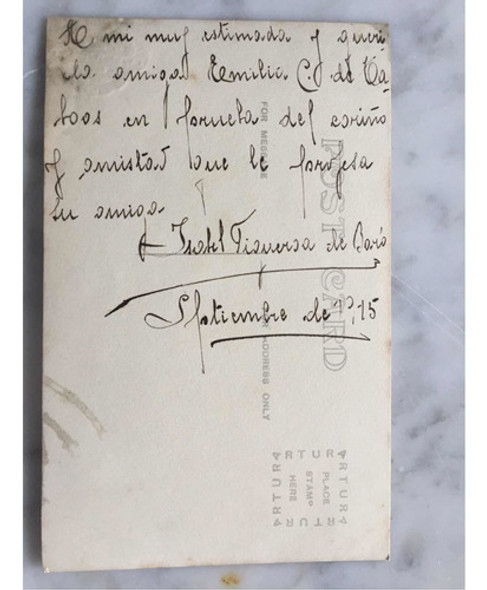 A mi muy estimada y queri
da amiga Emilia C. de Ca
bos en prueba del cariño
y amistad que le profesa
su amiga
Isabel Figueroa de Baró
Septiembre de 1915
POST CARD
FOR MESSAGE
FOR ADDRESS ONLY
ARTURA
PLACE
STAMP
HERE
ARTURA
ARTURA
ARTURA